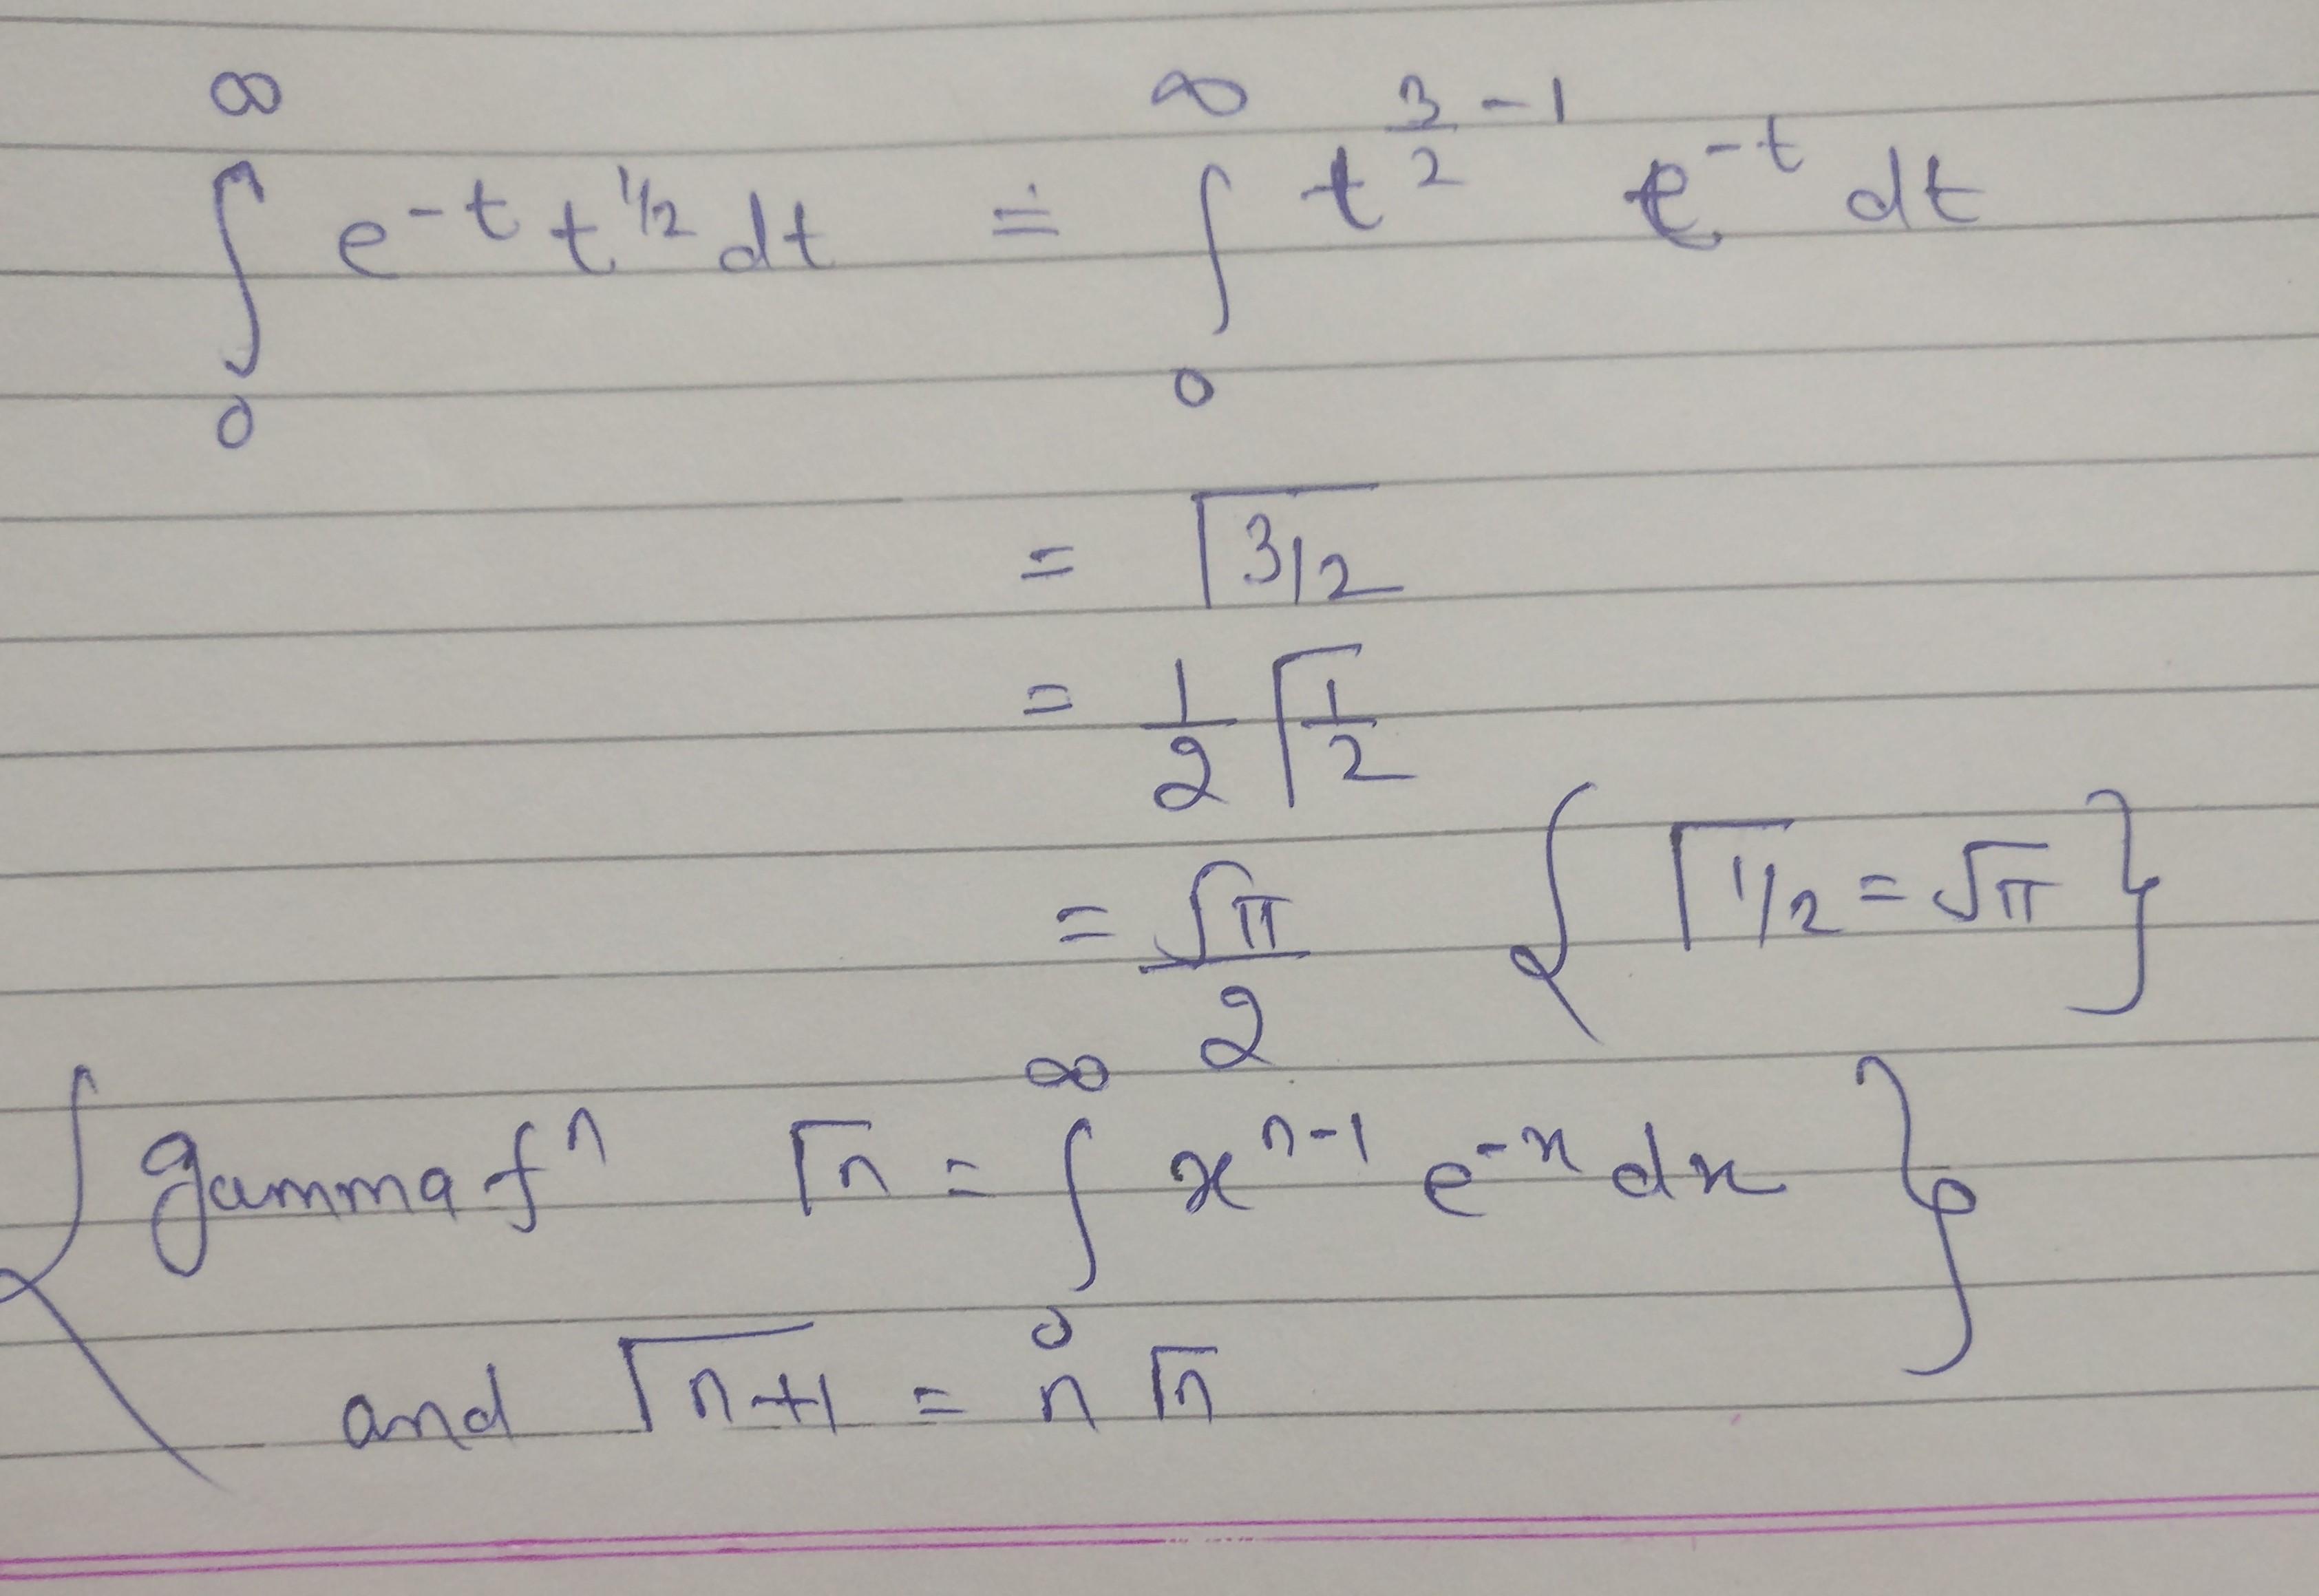 ∫₀^∞ e^{-t} t^{1/2} dt = ∫₀^∞ t^{3/2 - 1} e^{-t} dt
= Γ3/2
= 1/2 Γ1/2
= √π/2 { Γ1/2 = √π }
{ gamma fⁿ Γn = ∫₀^∞ x^{n-1} e^{-x} dx }
and Γn+1 = n Γn